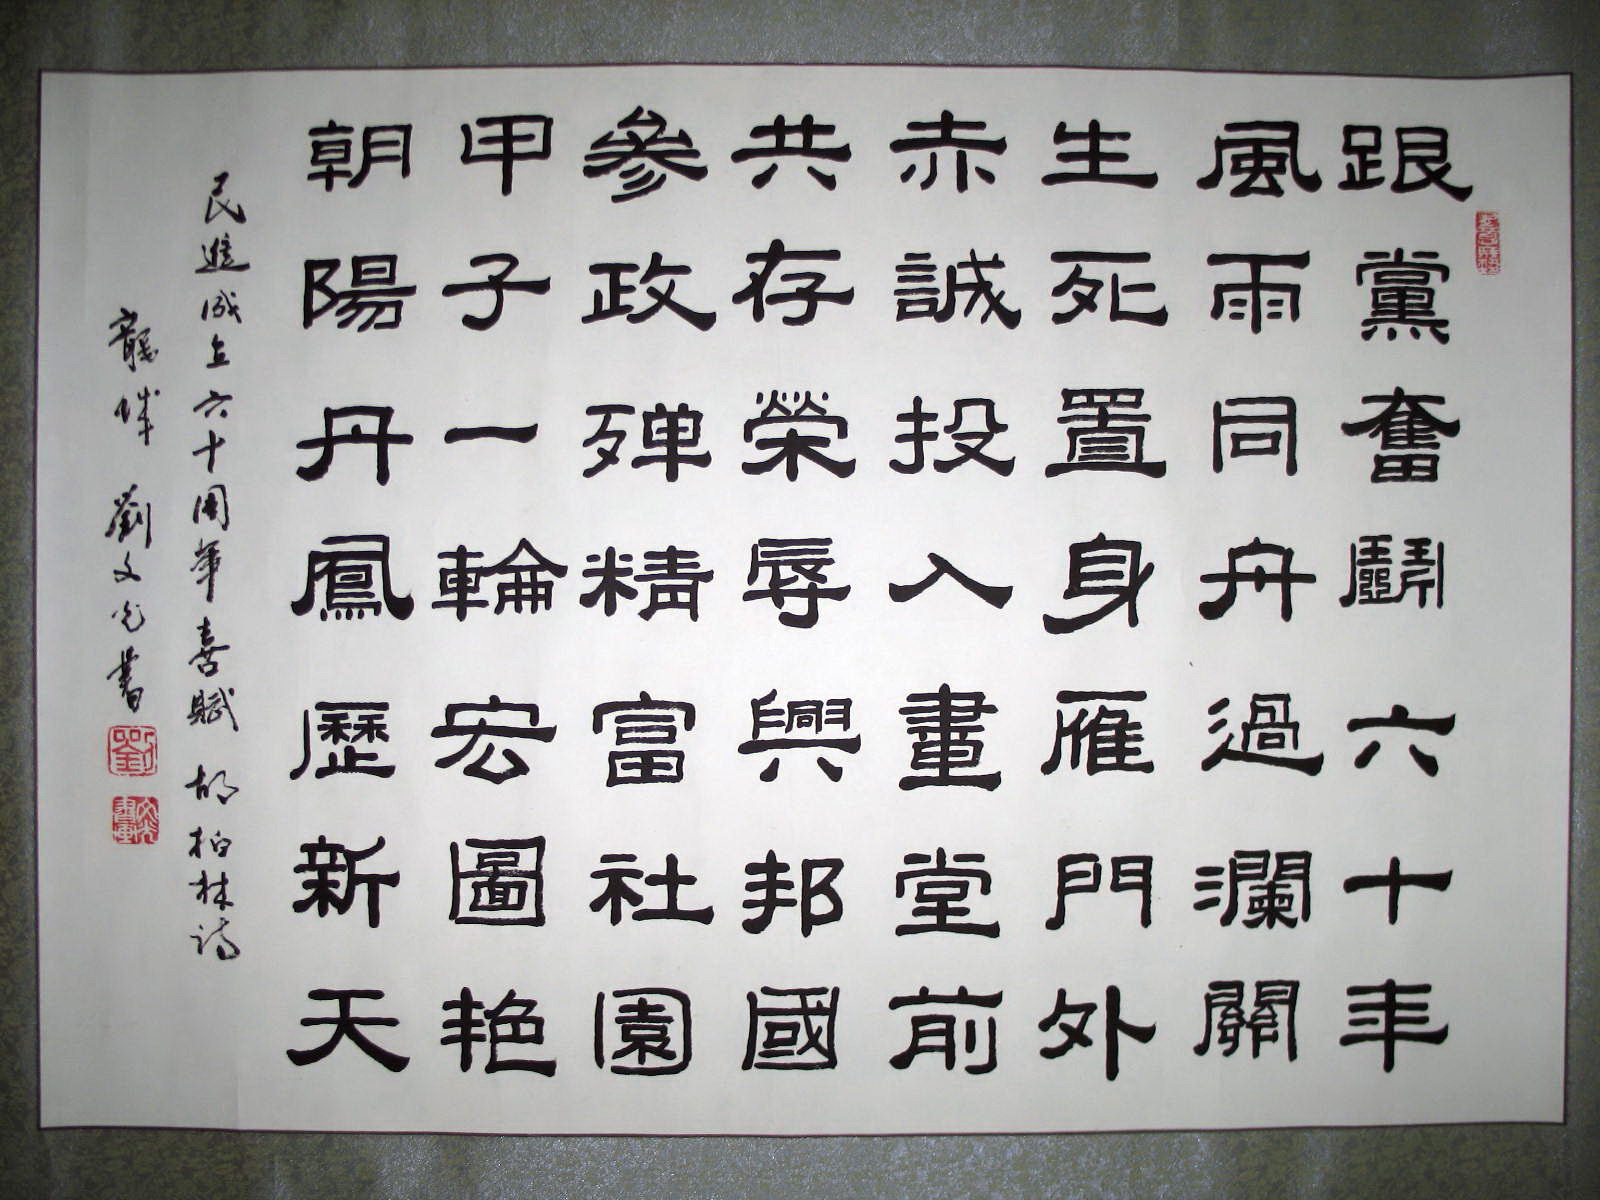 跟黨奮鬭六十年
風雨同舟過瀾關
生死置身雁門外
赤誠投入畫堂前
共存榮辱興邦國
參政殫精富社園
甲子一輪宏圖艳
朝陽丹鳳歷新天
民進成立六十周年喜賦 胡柏林詩
龍城 劉文光書
劉